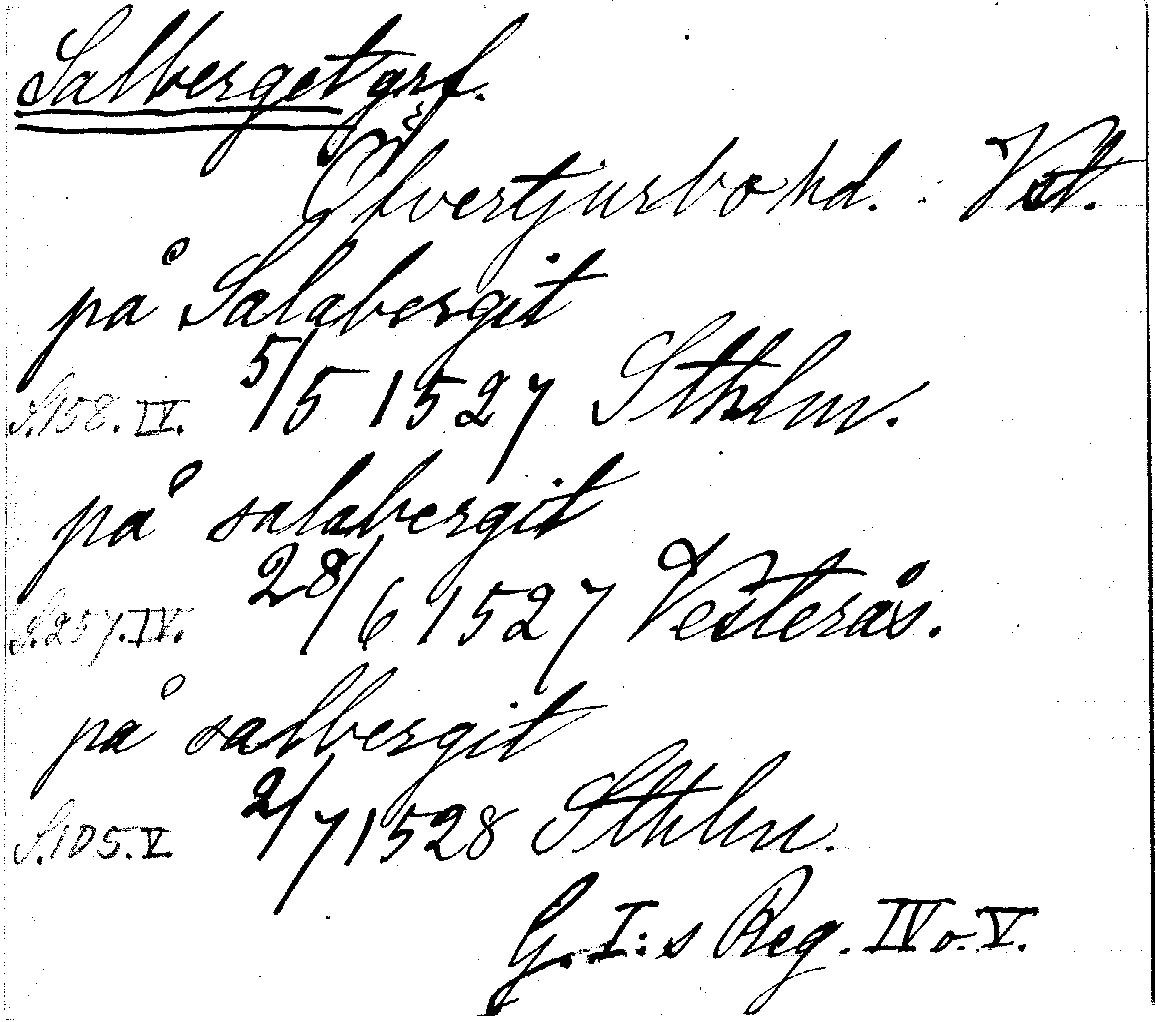 Salberget grf.
Öfvertjurbo hd. Vstl.
på Salabergit
S.158.IV. 5/5 1527 Sthlm.
på salabergit
S.257.IV. 28/6 1527 Vesterås.
på salbergit
S.105.V 2/7 1528 Sthlm.
G.I:s Reg. IV o. V.